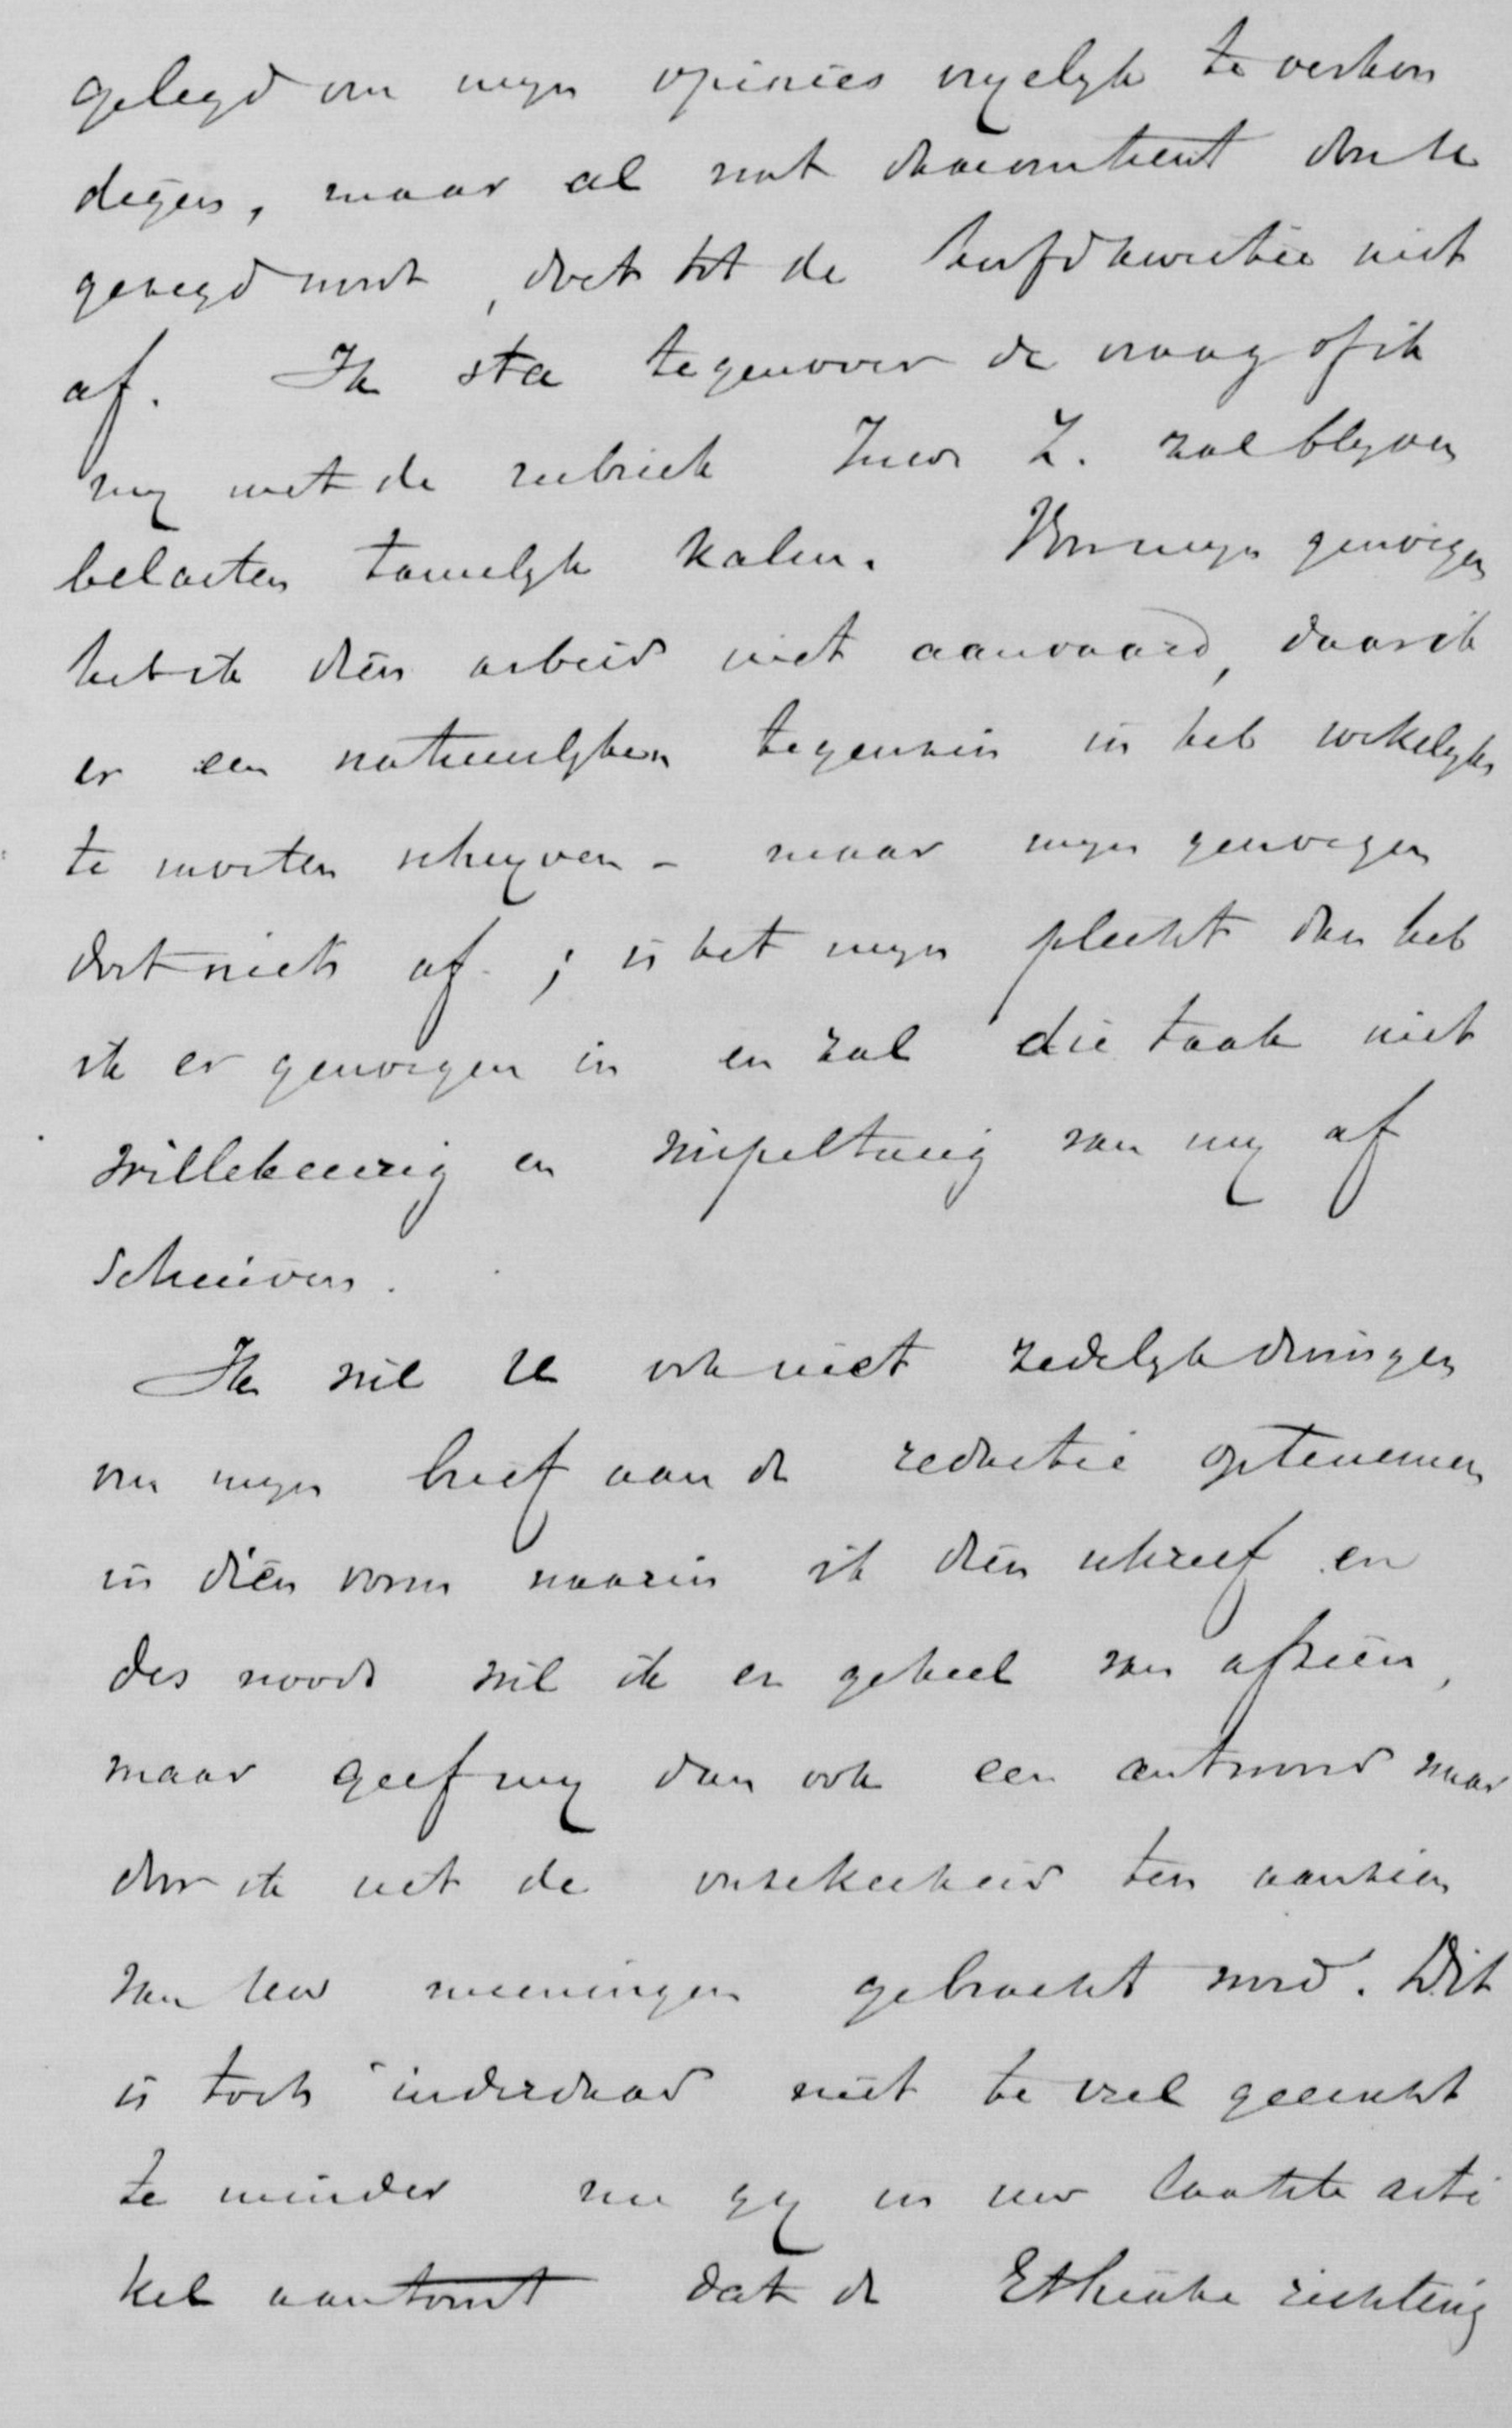 gelegd om mijn opinies vrijelijk te verkon
digen, maar al wat daaromtrent door U
gezegd wordt, doet tot de hoofdkwestie niet
af. Ik sta tegenover de vraag of ik
mij met de rubriek Inw Z. zal blijven
belasten tamelijk kalm. Voor mijn genoegen
heb ik dien arbeid niet aanvaard, daar ik
er een natuurlijken tegenzin in heb wekelijks
te moeten schrijven - maar mijn genoegen
doet niets af; is het mijn plicht dan heb
ik er genoegen in en zal die taak niet
willekeurig en wispelturig van mij af
schuiven.
Ik wil U ook niet zedelijk dwingen
om mijn brief aan de redactie optenemen
in dien vorm waarin ik dien schreef en
des noods wil ik er geheel van afzien,
maar geef mij dan ook een antwoord waar
door ik uit de onzekerheid ten aanzien
van Uw meeningen gebracht word. Dit
is toch inderdaad niet te veel geeischt
te minder nu gij in uw laatste arti
kel aantoont dat de Ethische richting